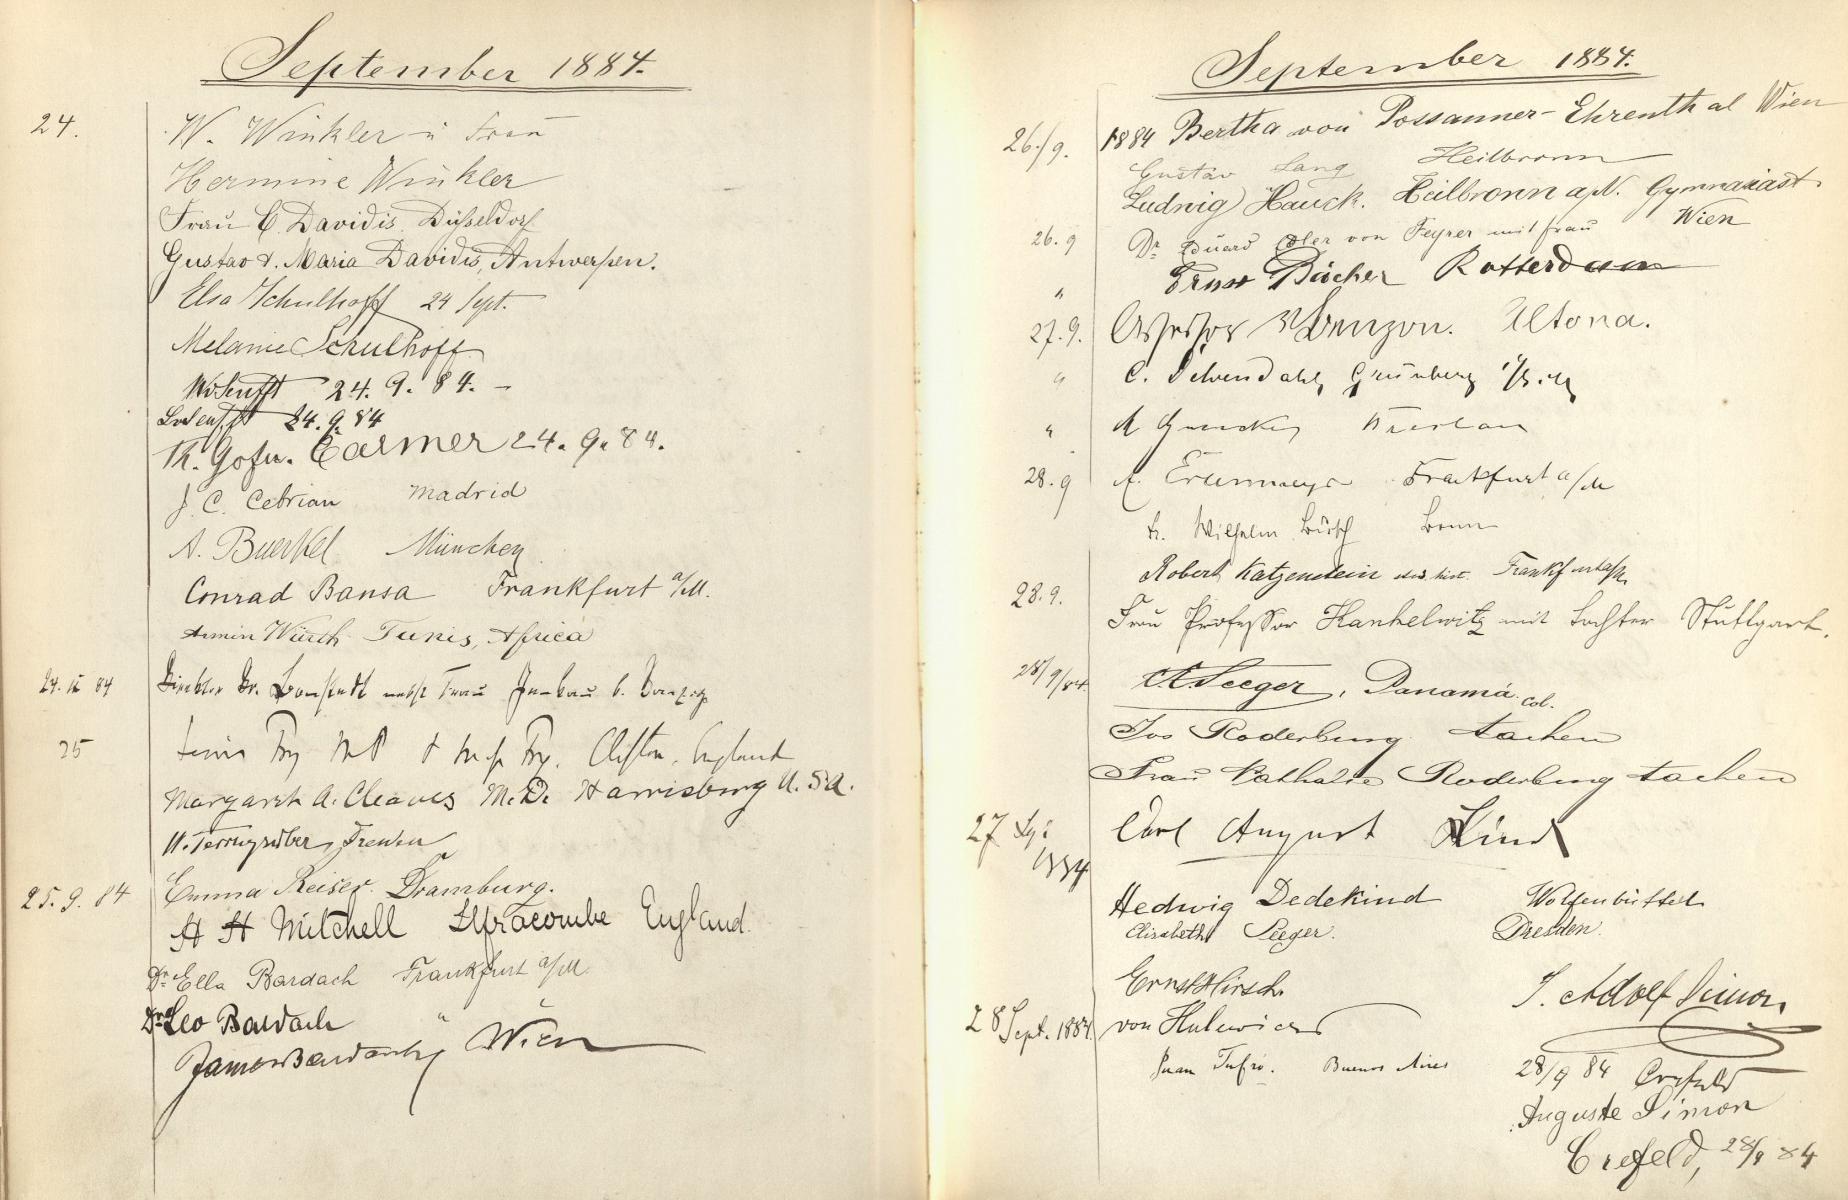 September 1884.
24. W. Winkler u Frau
Hermine Winkler
Frau C. Davidis Düsseldorf
Gustav & Maria Davidis, Antwerpen.
Elsa Schulhoff 24 Sept.
Melanie Schulhoff
24. 9. 84.
24. 9. 84
Th. Carmer 24. 9. 84.
J. C. Cebrian Madrid
A. Buerkel München
Conrad Bansa Frankfurt a/M.
Armin Würth Tunis, Africa
24. IX 84 Direktor Dr. nebst Frau b. Danzig
25 Lewis Fry MP & Mrs Fry. Clifton, England
Margaret A. Cleaves M.D. Harrisburg U. S. A.
25. 9. 84 Emma Reiser. Dramburg.
H H Mitchell Ilfracombe England.
Dr. Ella Bardach Frankfurt a/M.
Dr. Leo Bardach "
James Bardach, Wien
September 1884.
26./9. 1884 Bertha von Possanner-Ehrenthal Wien
Gustav Lang Heilbronn
Ludwig Hauck. Heilbronn a/N. Gymnasiast
26. 9 Dr. Eduard Edler von Feyrer mit Frau Wien
" Ernst Bücher Rotterdam
27. 9. Assessor Wenzon. Altona.
" C. Grünberg i/
" Breslau
28. 9 A. Frankfurt a/M
Dr. Wilhelm Bonn
Robert Katzenstein Frankfurt a/M.
28. 9. Frau Professor Kankelwitz mit Tochter Stuttgart.
28/9/84. Seeger, Panamá. Col.
Jos Roderburg Aachen
Frau Nathalie Roderburg Aachen
27 1884 Carl August Kind
Hedwig Dedekind Wolfenbüttel
Elisabeth Seeger. Dresden.
Ernst Hirsch.
J. Adolf Simon,
28 Sept. 1884. von Hulewicz
Juan Tufró. Buenos Aires
28/9 84 Crefeld
Auguste Simon
Crefeld, 28/9 84